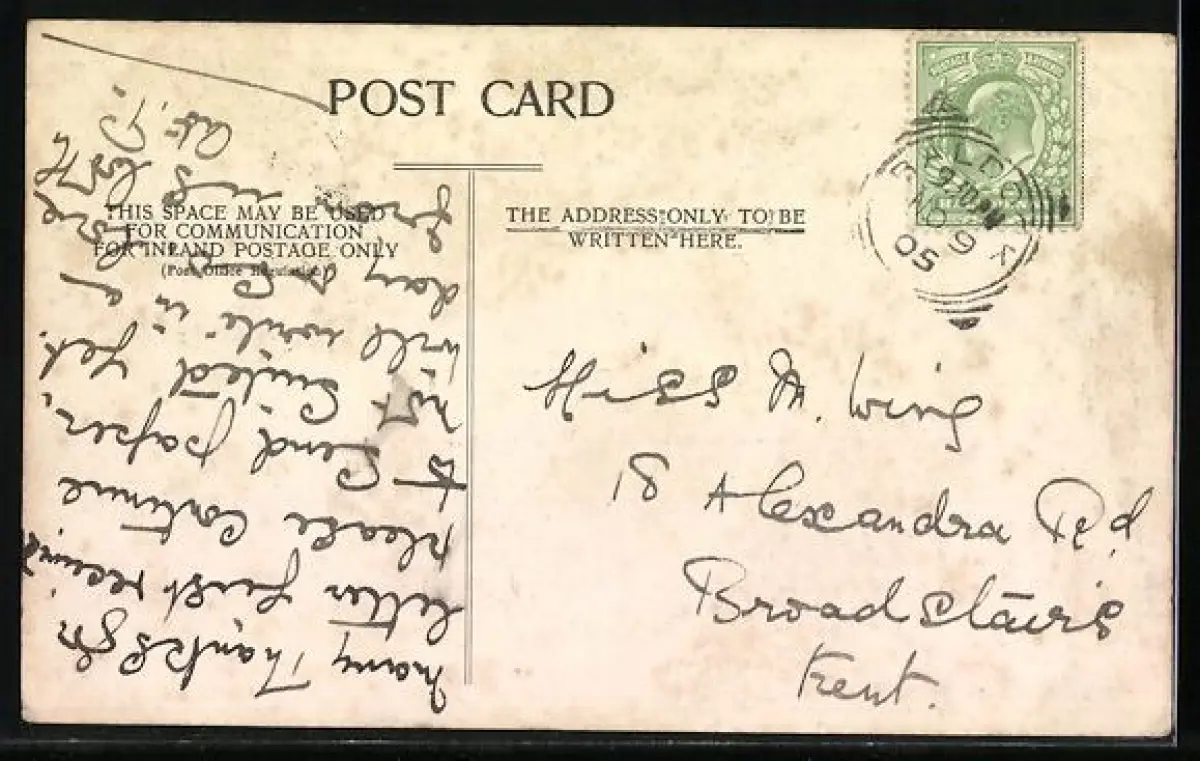 POST CARD
THIS SPACE MAY BE USED
FOR COMMUNICATION
FOR INLAND POSTAGE ONLY
(Post Office Regulation)
THE ADDRESS ONLY TO BE
WRITTEN HERE.
BALDOCK
9.30 PM
05
Miss M. Wing
18 Alexandra Rd
Broadstairs
Kent.
Many Thanks for
letter just received
please continue
to send paper,
not suited yet.
will write in a
day or
from